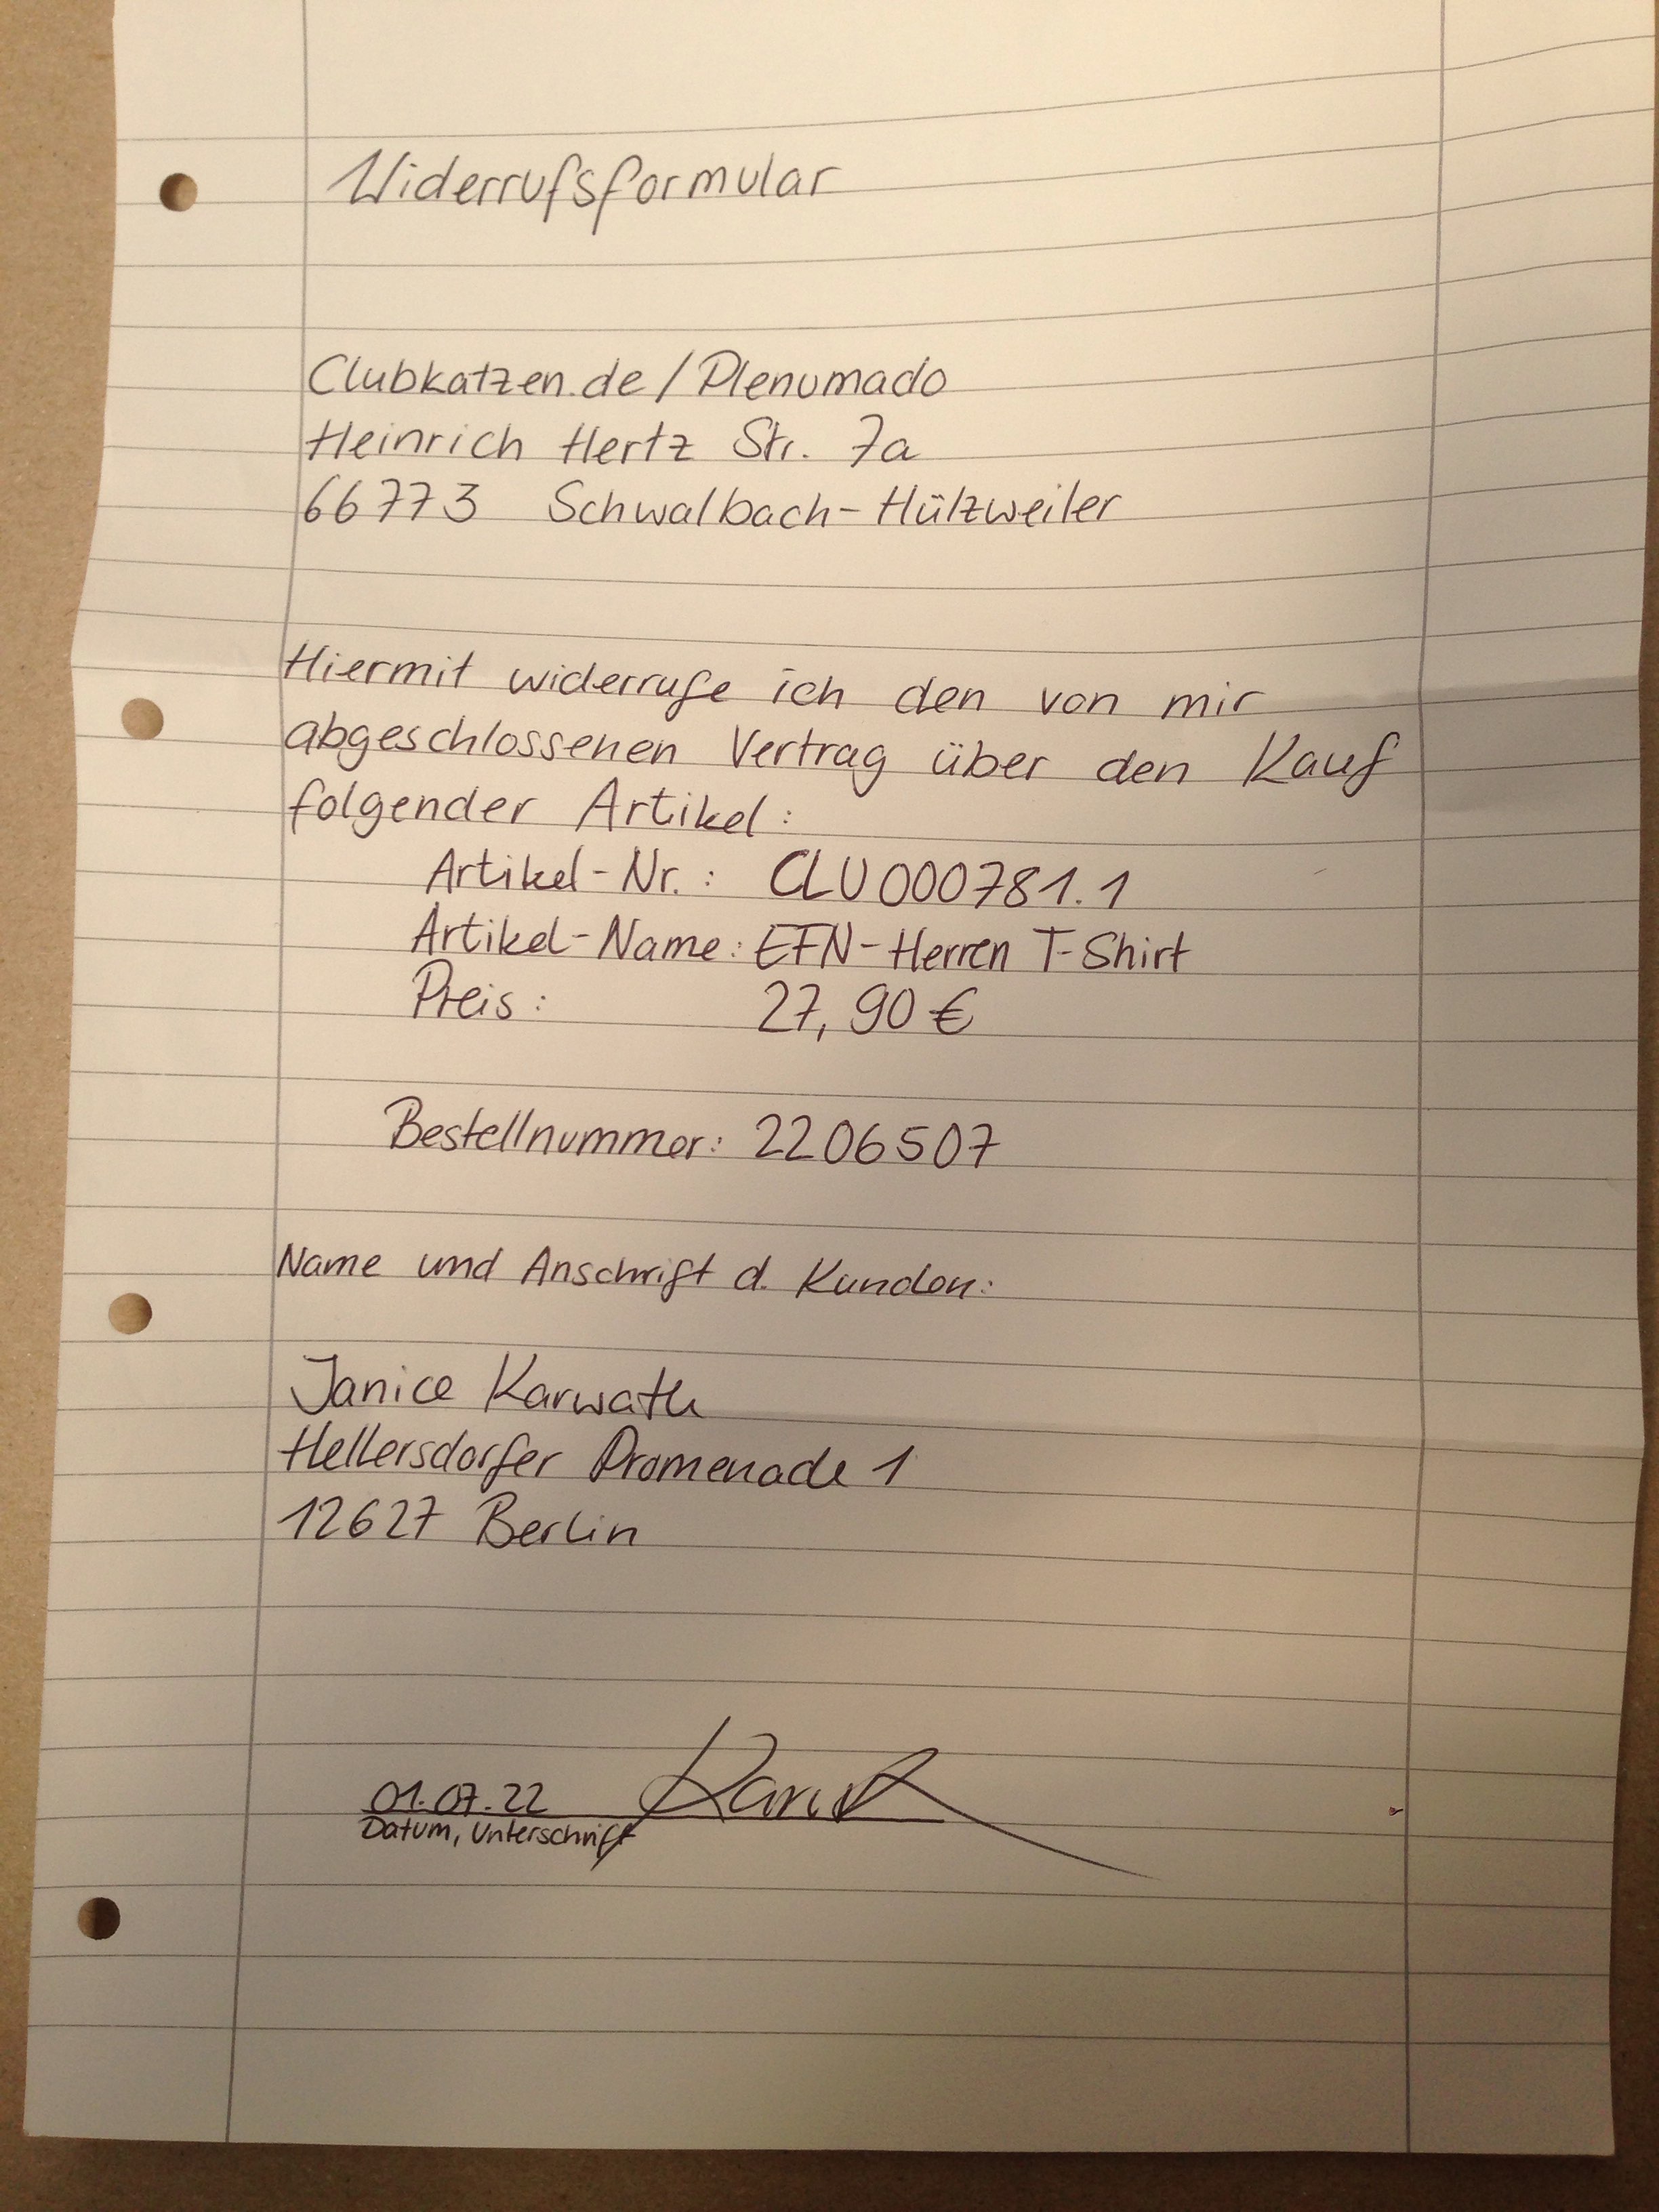 Widerrufsformular
Clubkatzen.de / Plenumado
Heinrich Hertz Str. 7a
66773 Schwalbach-Hülzweiler
Hiermit widerrufe ich den von mir
abgeschlossenen Vertrag über den Kauf
folgender Artikel:
Artikel-Nr.: CLU000781.1
Artikel-Name: EFN-Herren T-Shirt
Preis: 27,90 €
Bestellnummer: 2206507
Name und Anschrift d. Kunden:
Janice Karwath
Hellersdorfer Promenade 1
12627 Berlin
01.07.22
Datum, Unterschrift